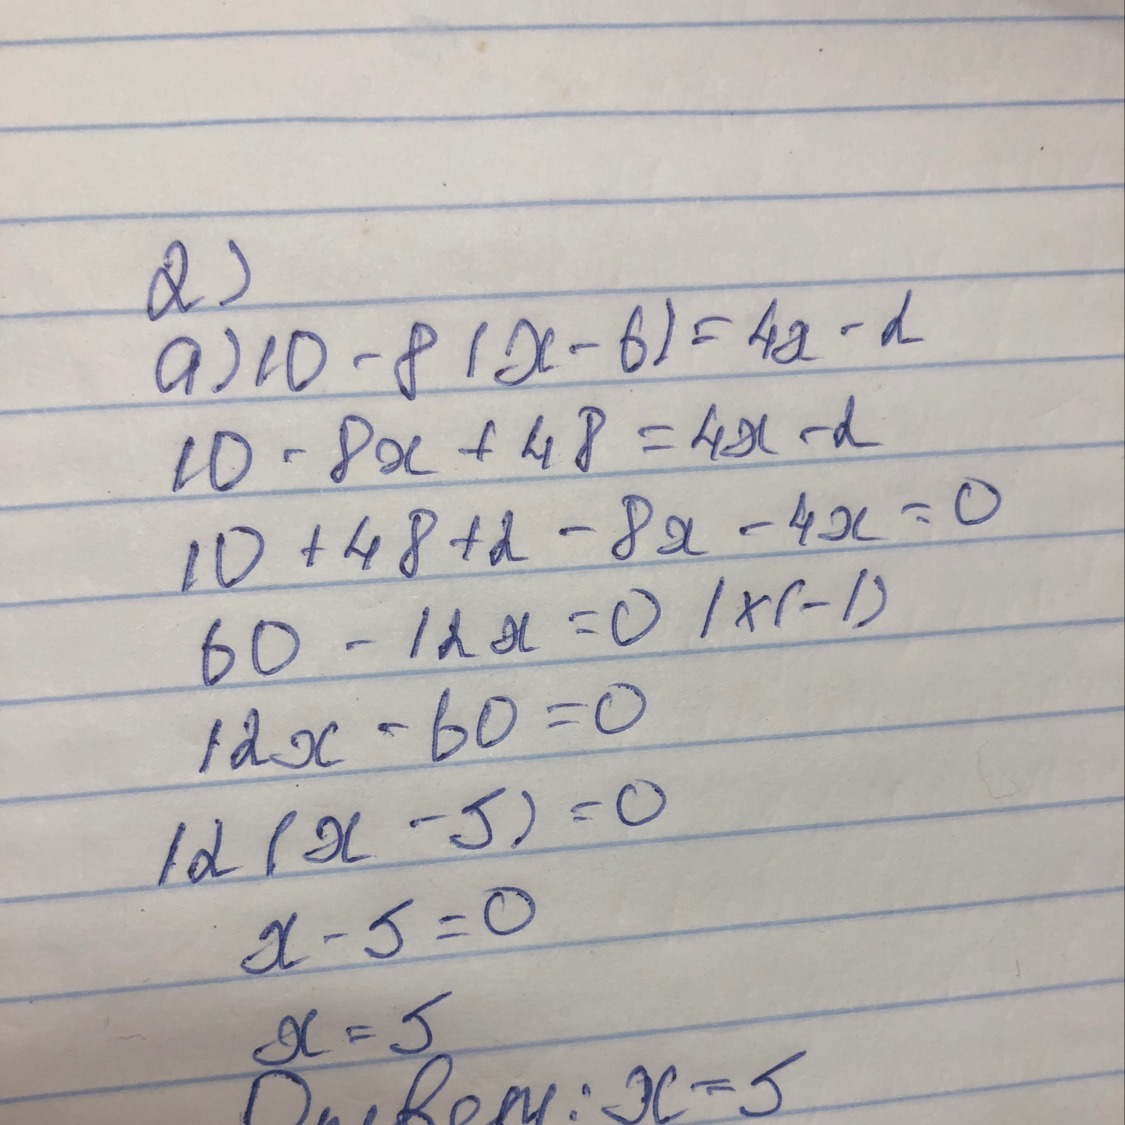 2)
а) 10 - 8 (x - 6) = 4x - 2
10 - 8x + 48 = 4x - 2
10 + 48 + 2 - 8x - 4x = 0
60 - 12x = 0 | x(-1)
12x - 60 = 0
12 (x - 5) = 0
x - 5 = 0
x = 5
Ответ: x = 5